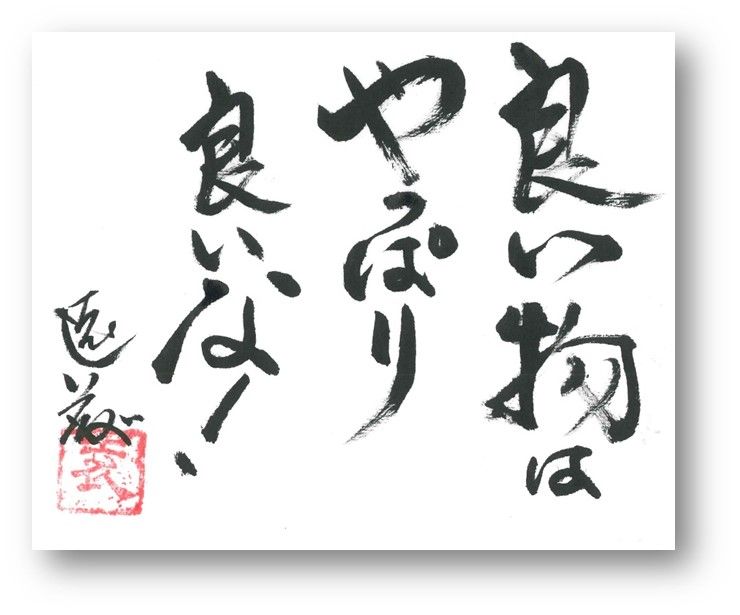 良い物は
やっぱり
良いな!